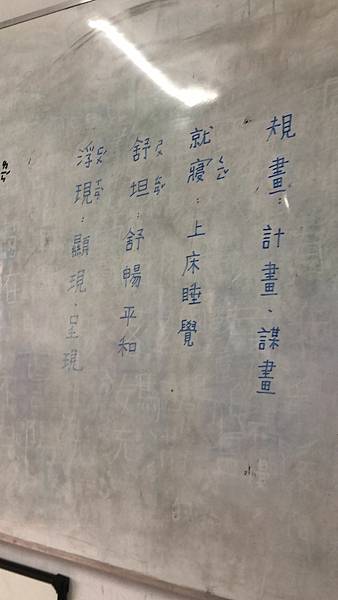 規畫：計畫、謀畫
就寢：上床睡覺
舒坦：舒暢平和
浮現：顯現、呈現